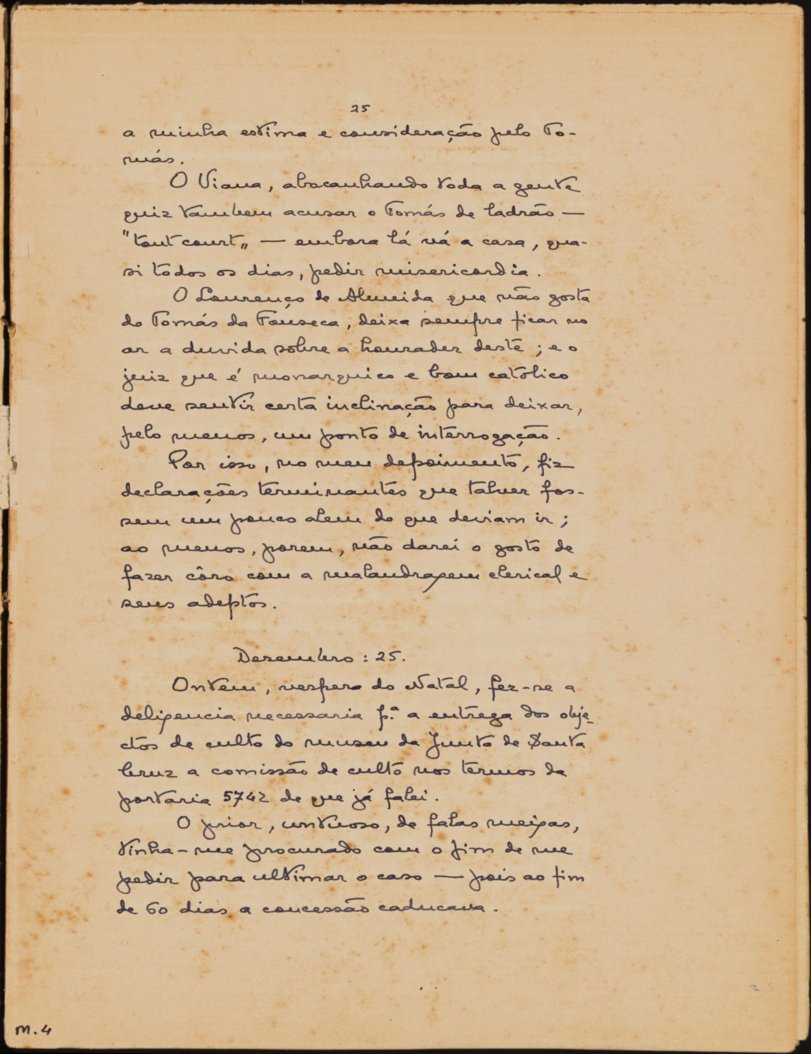 25
a minha estima e consideração pelo To-
más.
O Viana, abocanhando toda a gente
quiz tambem acusar o Tomás de ladrão —
"tout court„ — embora lá vá a casa, qua-
si todos os dias, pedir misericordia.
O Lourenço de Almeida que não gosta
do Tomás da Fonseca, deixa sempre ficar no
ar a duvida sobre a honradez deste; e o
juiz que é monarquico e bom católico
deve sentir certa inclinação para deixar,
pelo menos, um ponto de interrogação.
Por isso, no meu depoimento, fiz
declarações terminantes que talvez fos-
sem um pouco alem do que deviam ir;
ao menos, porem, não darei o gosto de
fazer côro com a malandragem clerical e
seus adeptos.
Dezembro: 25.
Ontem, vespera do Natal, fez-se a
deligencia necessaria p.ª a entrega dos obje-
ctos de culto do museu da Junta de Santa
Cruz a comissão de culto nos termos da
portaria 5742 de que já falei.
O prior, untuoso, de falas meigas,
tinha-me procurado com o fim de me
pedir para ultimar o caso — pois ao fim
de 60 dias a concessão caducava.
M.4